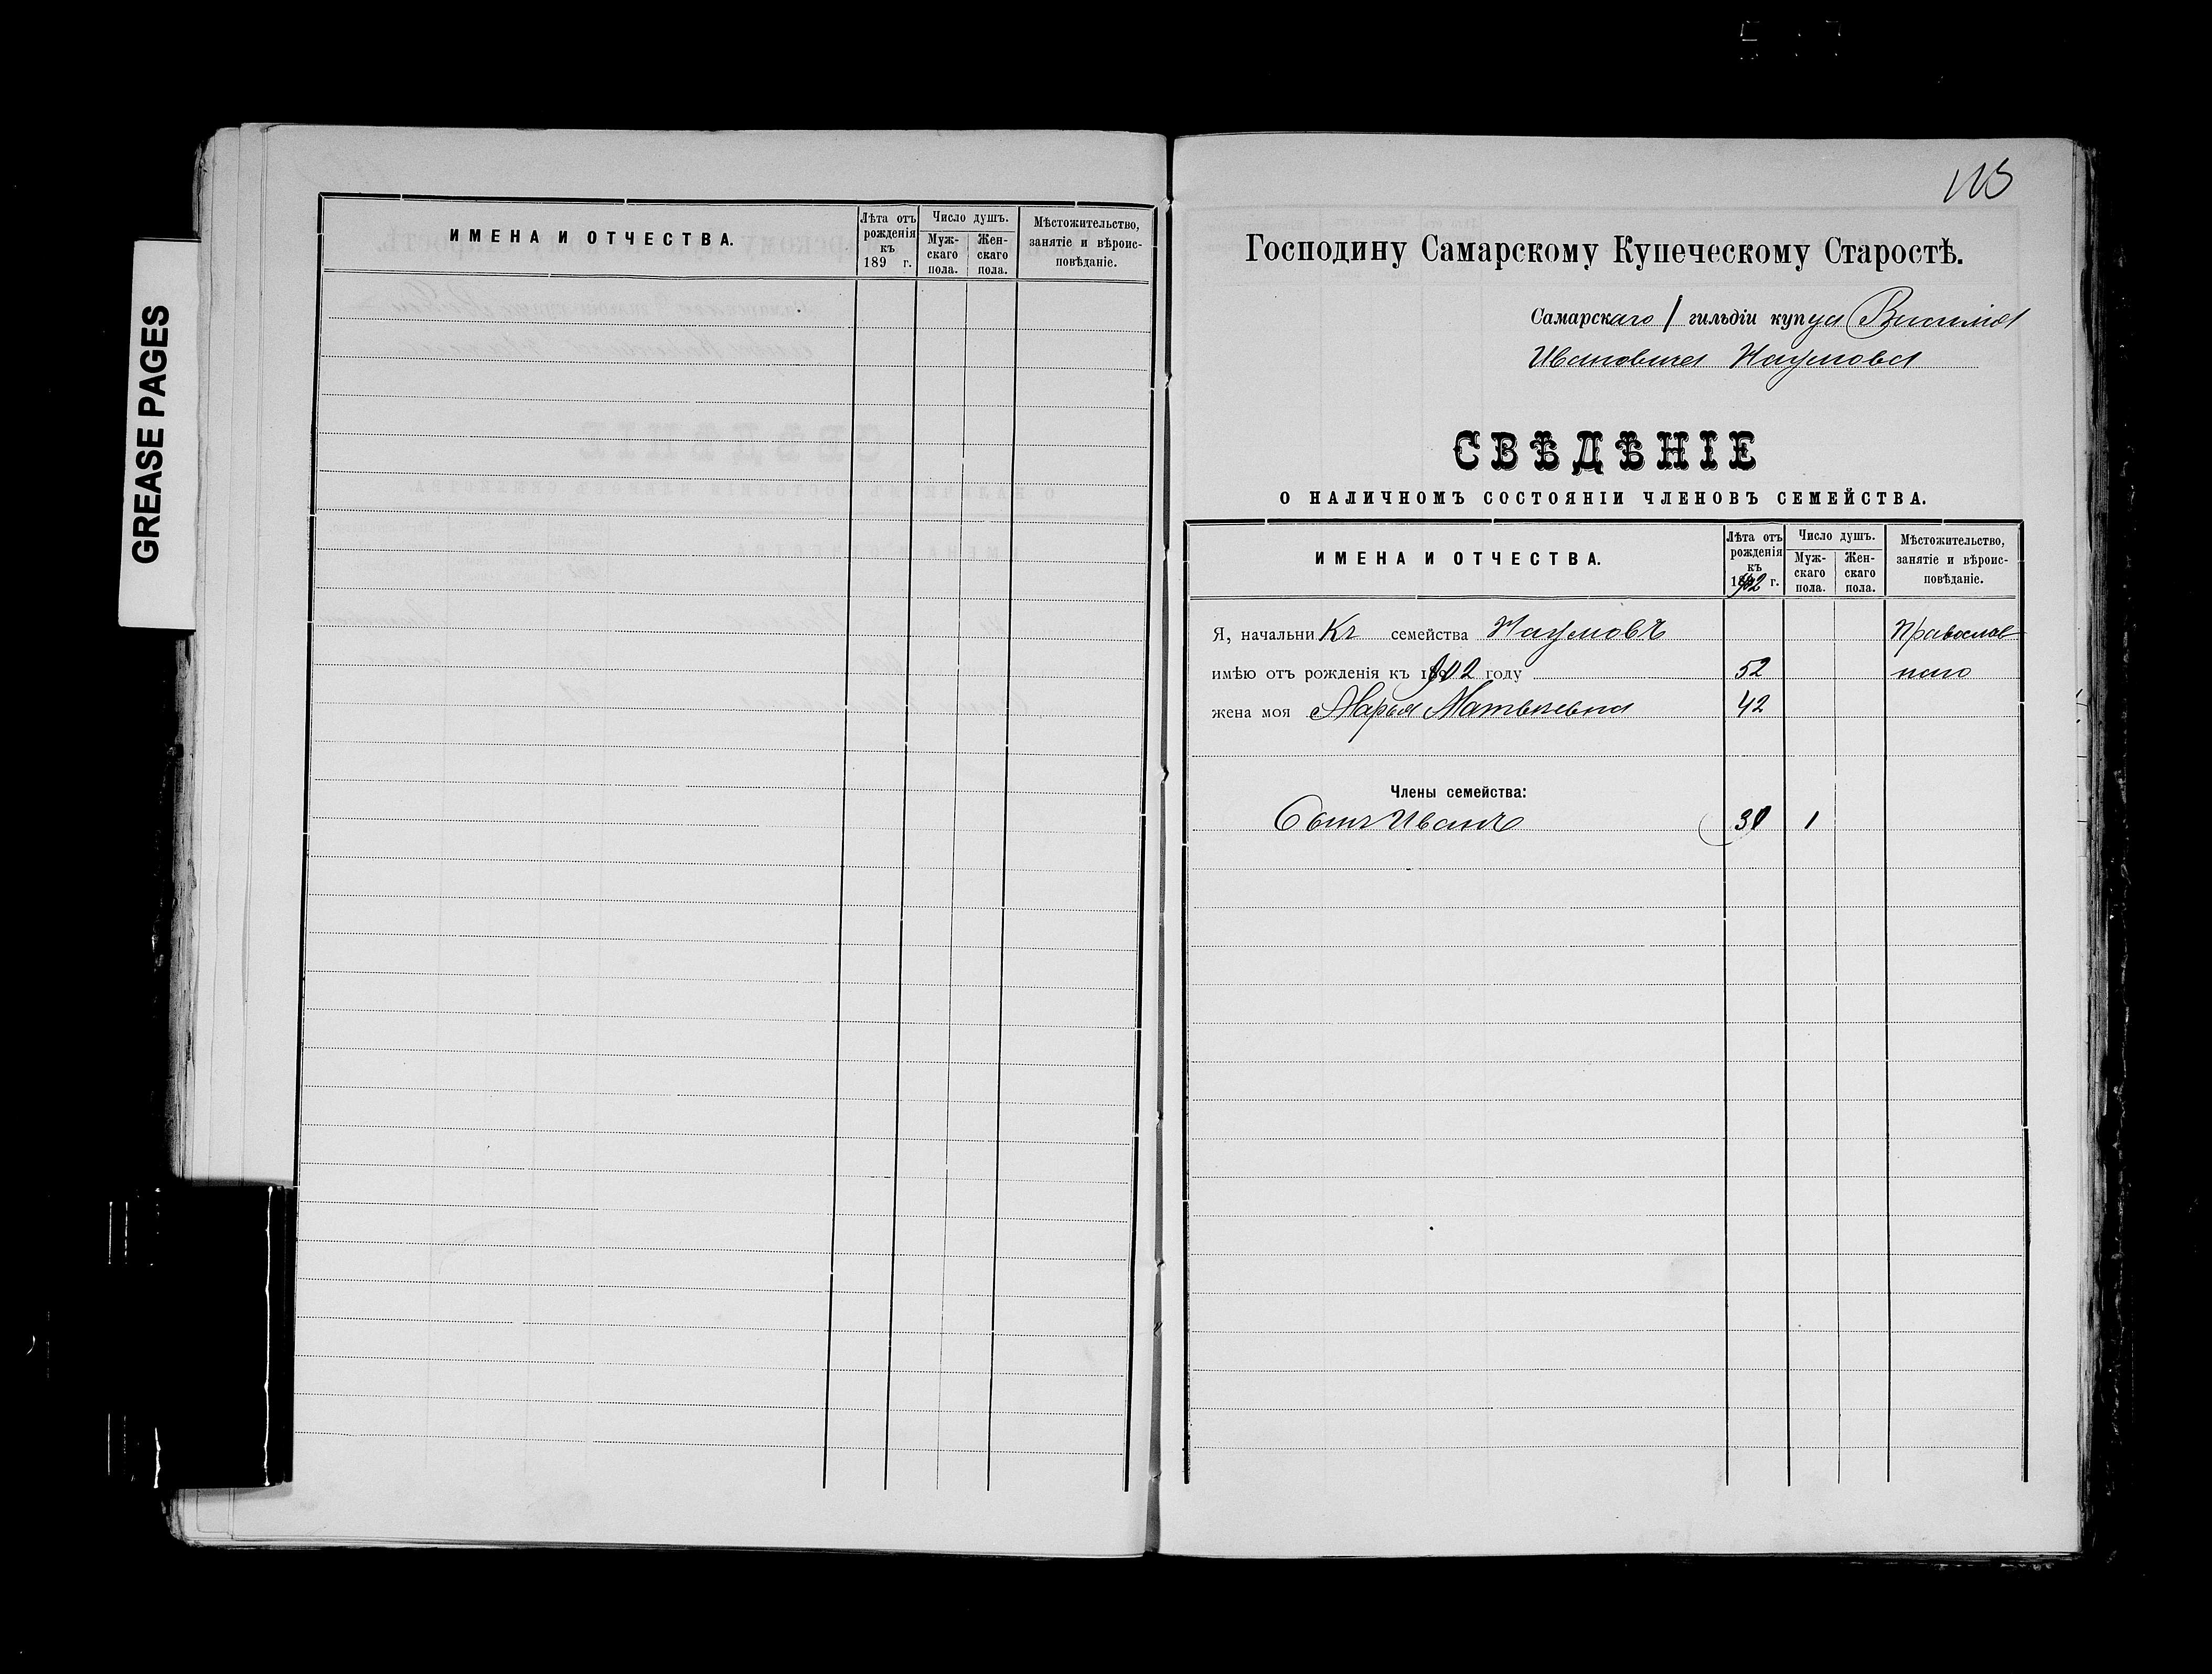 GREASE PAGES
ИМЕНА И ОТЧЕСТВА.
Лѣта отъ рожденія къ 189 г.
Число душъ.
Муж-скаго пола.
Жен-скаго пола.
Мѣстожительство, занятіе и вѣроис-повѣданіе.
Господину Самарскому Купеческому Старостѣ.
Самарскаго 1 гильдіи купца Василія
Ивановича Наумова
СВѢДѢНІЕ
О НАЛИЧНОМЪ СОСТОЯНІИ ЧЛЕНОВЪ СЕМЕЙСТВА.
ИМЕНА И ОТЧЕСТВА.
Лѣта отъ рожденія къ 1902 г.
Число душъ.
Муж-скаго пола.
Жен-скаго пола.
Мѣстожительство, занятіе и вѣроис-повѣданіе.
Я, начальникъ семейства Наумовъ Православ
имѣю отъ рожденія къ 1902 году 52 наго
жена моя Марья Матвѣевна 42
Члены семейства:
Сынъ Иванъ 1